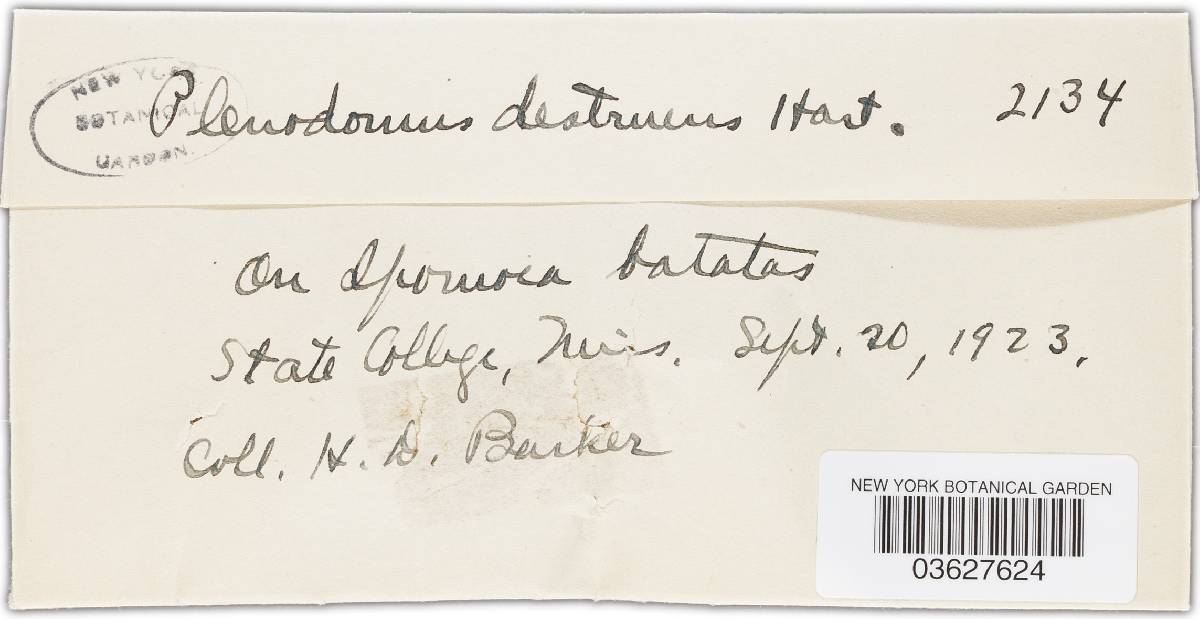 NEW YORK
BOTANICAL
GARDEN.
Plenodomus destruens Hart. 2134
On Ipomoea batatas
State College, Miss. Sept. 20, 1923.
Coll. H. D. Barker
NEW YORK BOTANICAL GARDEN
03627624